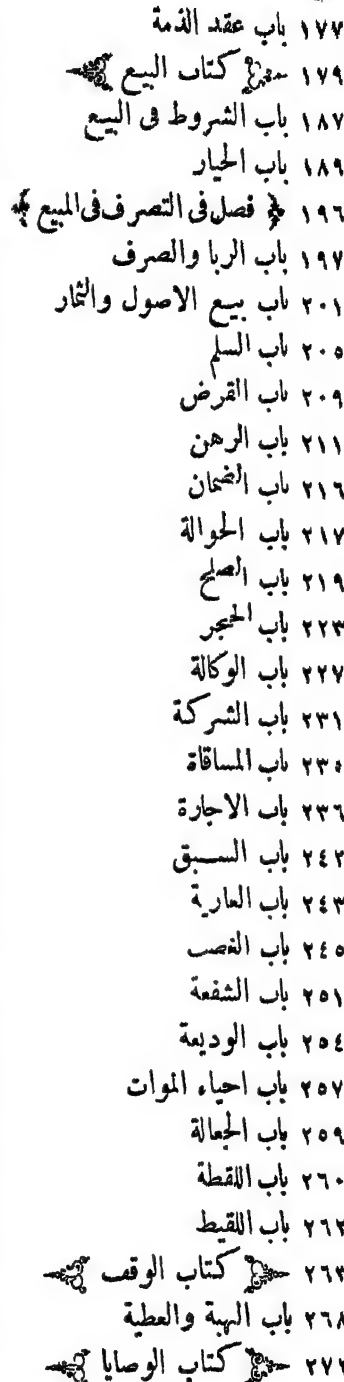 ١٧٧ باب عقد الذمة
١٧٩ كتاب البيع
١٨٧ باب الشروط فى البيع
١٨٩ باب الخيار
١٩٦ ﴿ فصل فى التصرف فى المبيع ﴾
١٩٧ باب الربا والصرف
٢٠١ باب بيع الاصول والثمار
٢٠٥ باب السلم
٢٠٩ باب القرض
٢١١ باب الرهن
٢١٦ باب الضمان
٢١٧ باب الحوالة
٢١٩ باب الصلح
٢٢٣ باب الحجر
٢٢٧ باب الوكالة
٢٣١ باب الشركة
٢٣٥ باب المساقاة
٢٣٦ باب الاجارة
٢٤٢ باب السبق
٢٤٣ باب العارية
٢٤٥ باب الغصب
٢٥١ باب الشفعة
٢٥٤ باب الوديعة
٢٥٧ باب احياء الموات
٢٥٩ باب الجعالة
٢٦٠ باب اللقطة
٢٦٢ باب اللقيط
٢٦٣ كتاب الوقف
٢٦٨ باب الهبة والعطية
٢٧٢ كتاب الوصايا